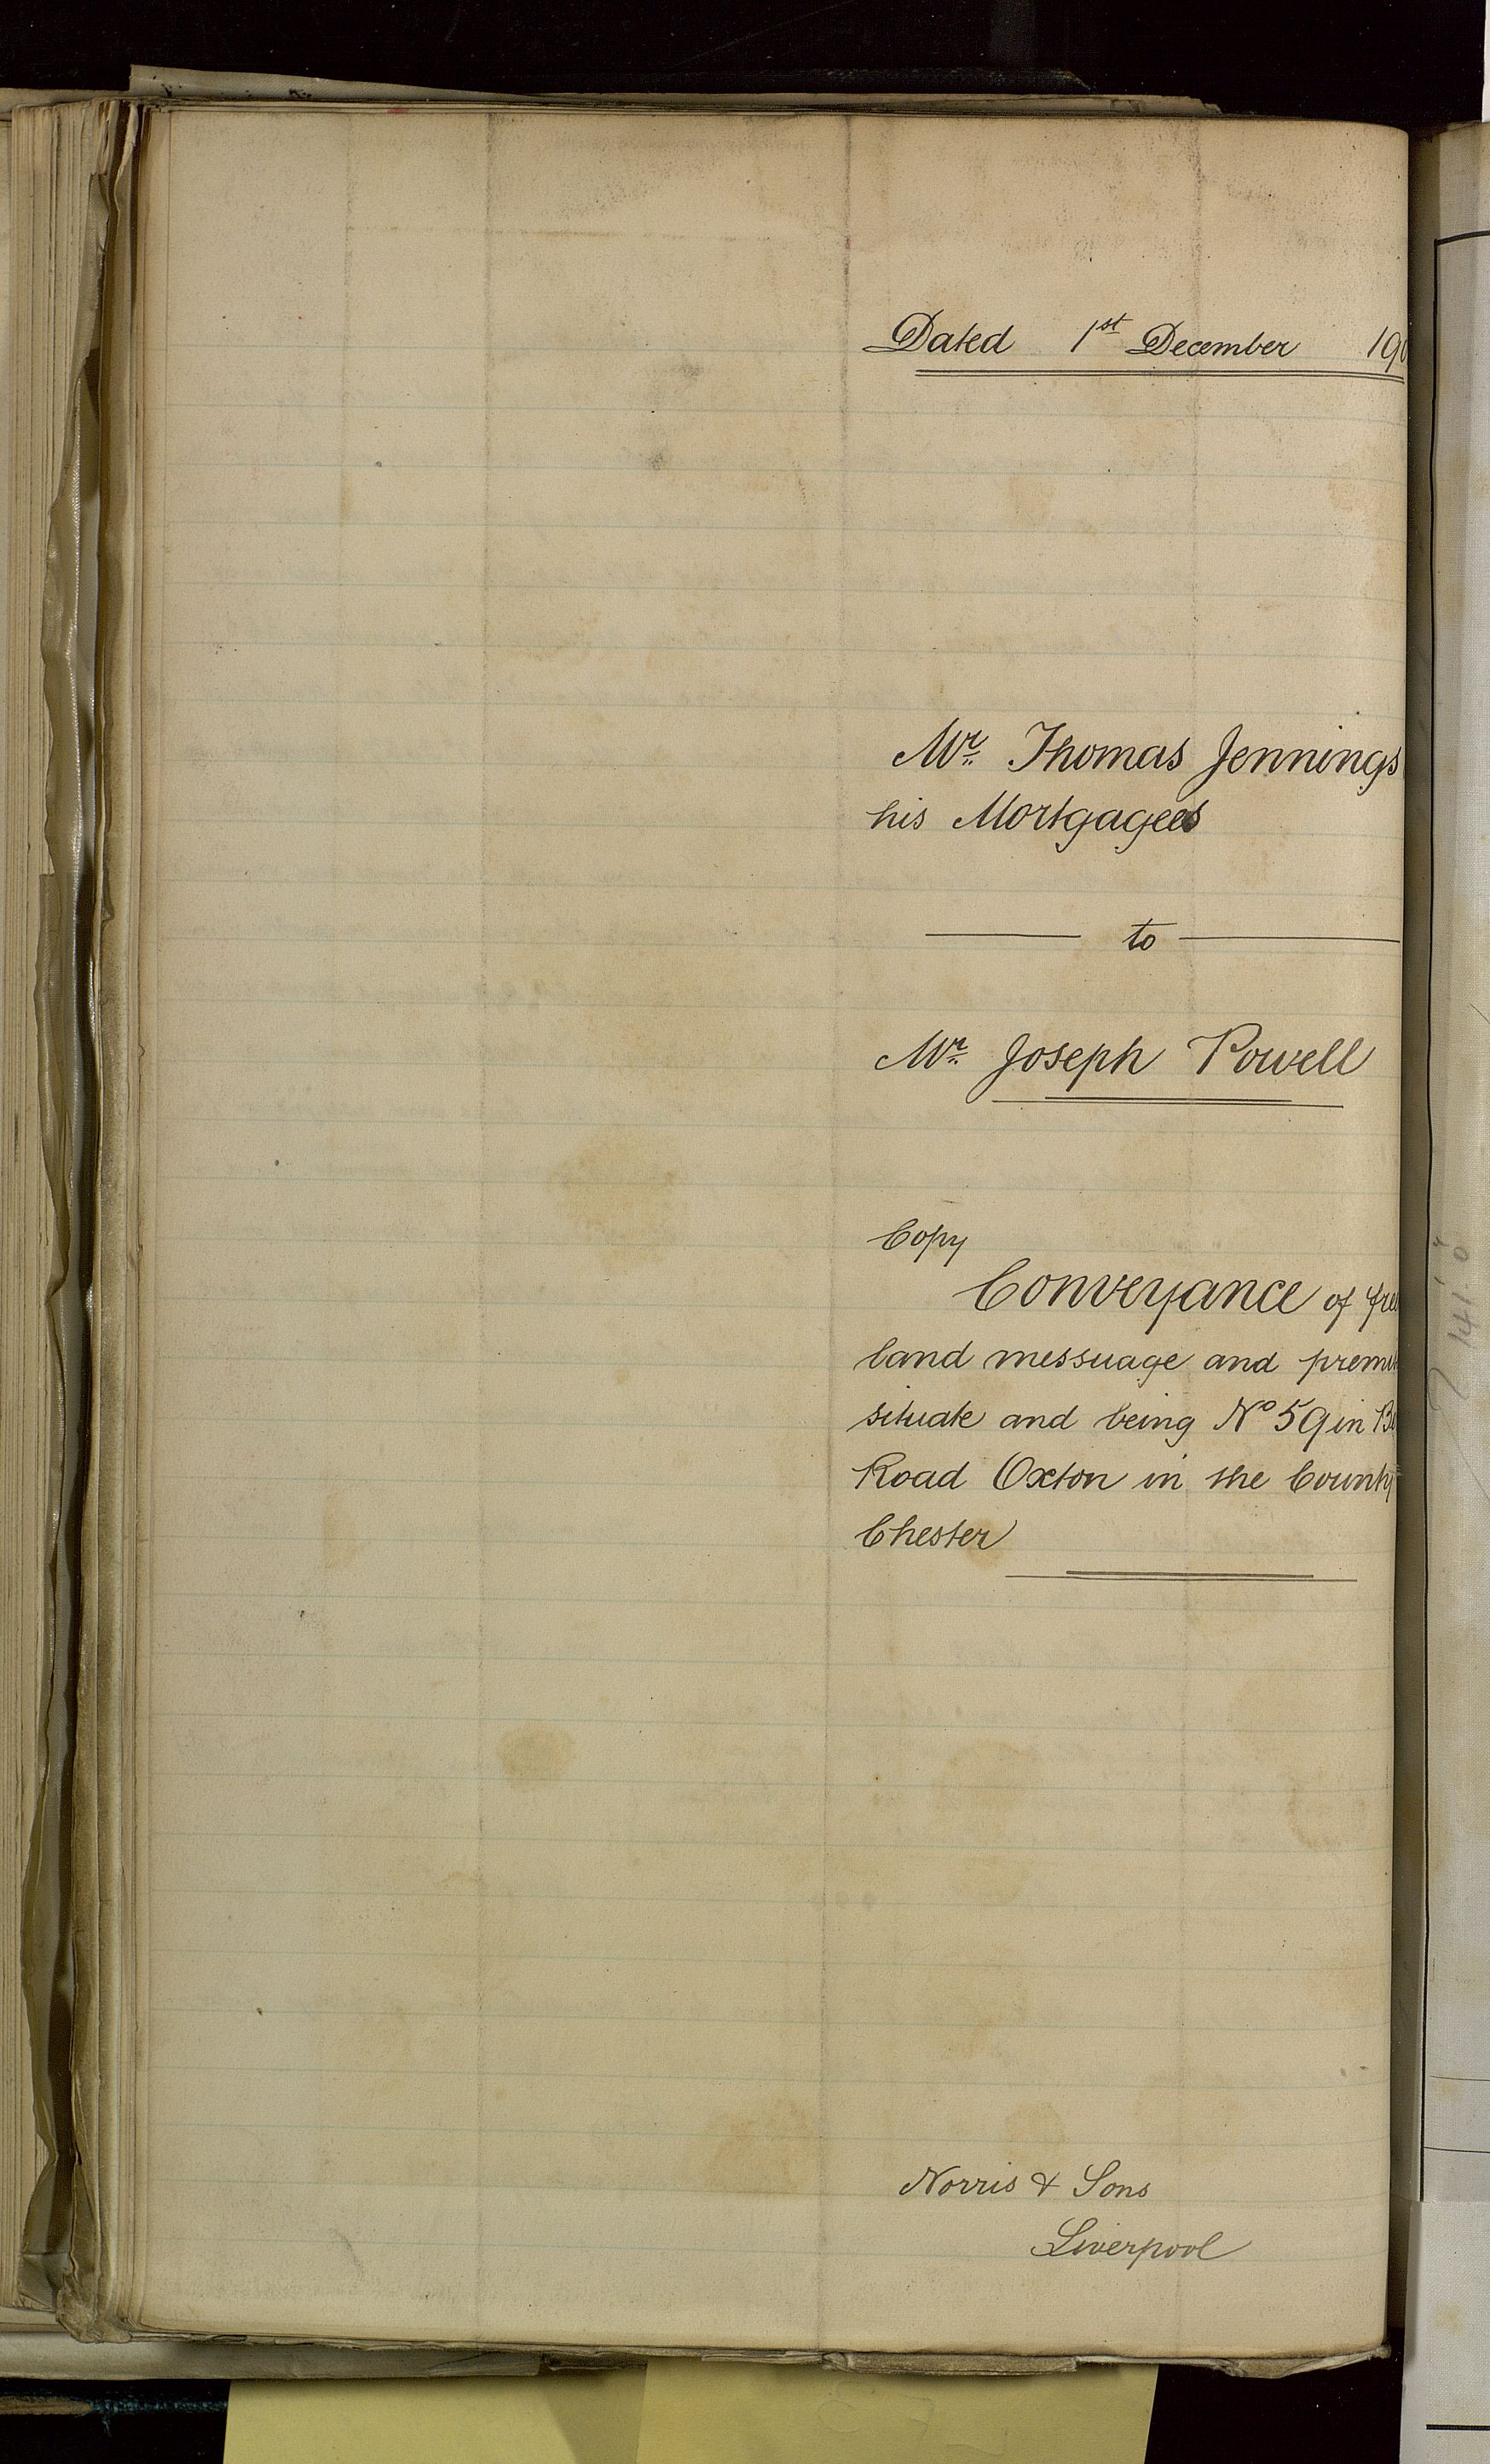 Dated 1st December 190
Mr Thomas Jennings
his Mortgagees
to
Mr Joseph Powell
Copy
Conveyance of fre
land messuage and premi
situate and being No 59 in B
Road Oxton in the County
Chester
Norris & Sons
Liverpool